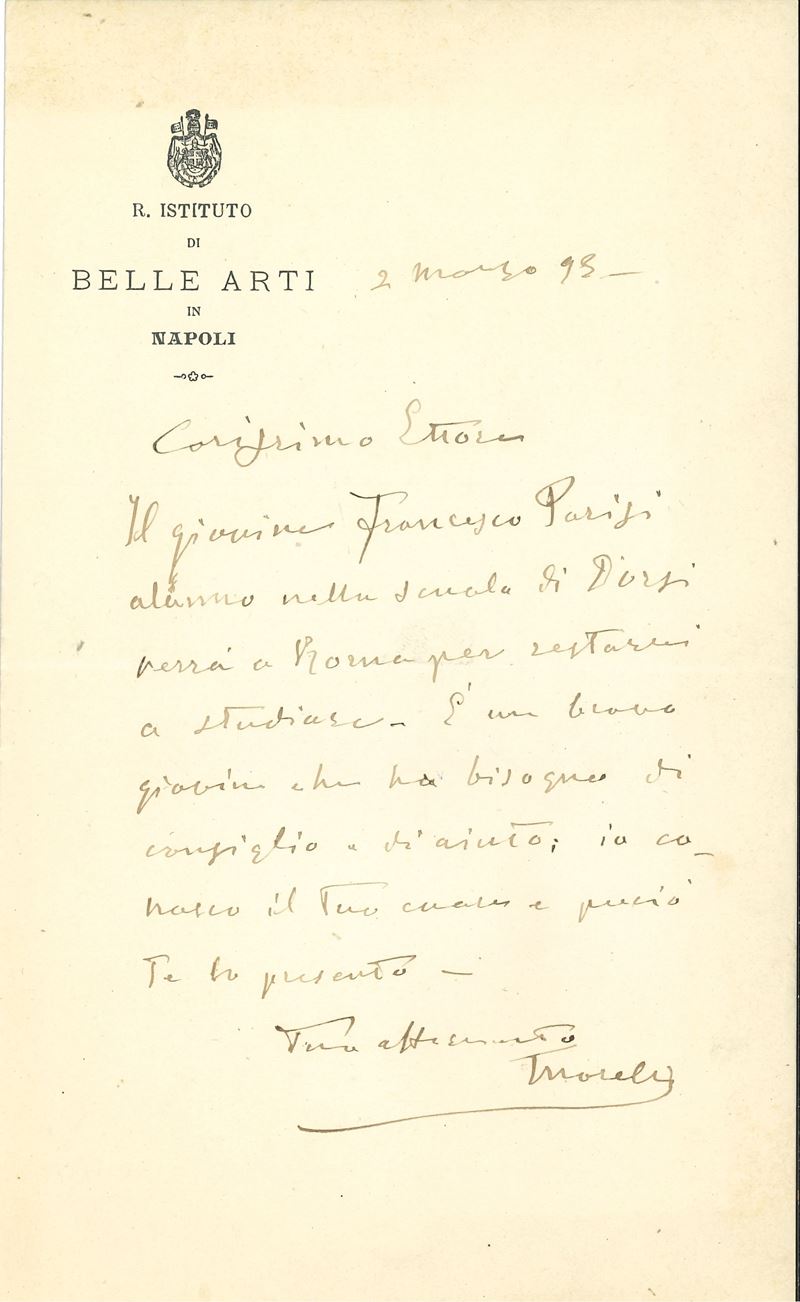 R. ISTITUTO
DI
BELLE ARTI
IN
NAPOLI
2 Marzo 93 —
Carissimo Ettore
Il giovine Francesco Parisi
alunno nella scuola di D'Orsi
verrà a Roma per restarvi
a studiare – È un bravo
giovine che ha bisogno di
consiglio e di aiuto; io co-
nosco il Tuo cuore e perciò
Te lo presento —
Tuo affezionato
Morelli